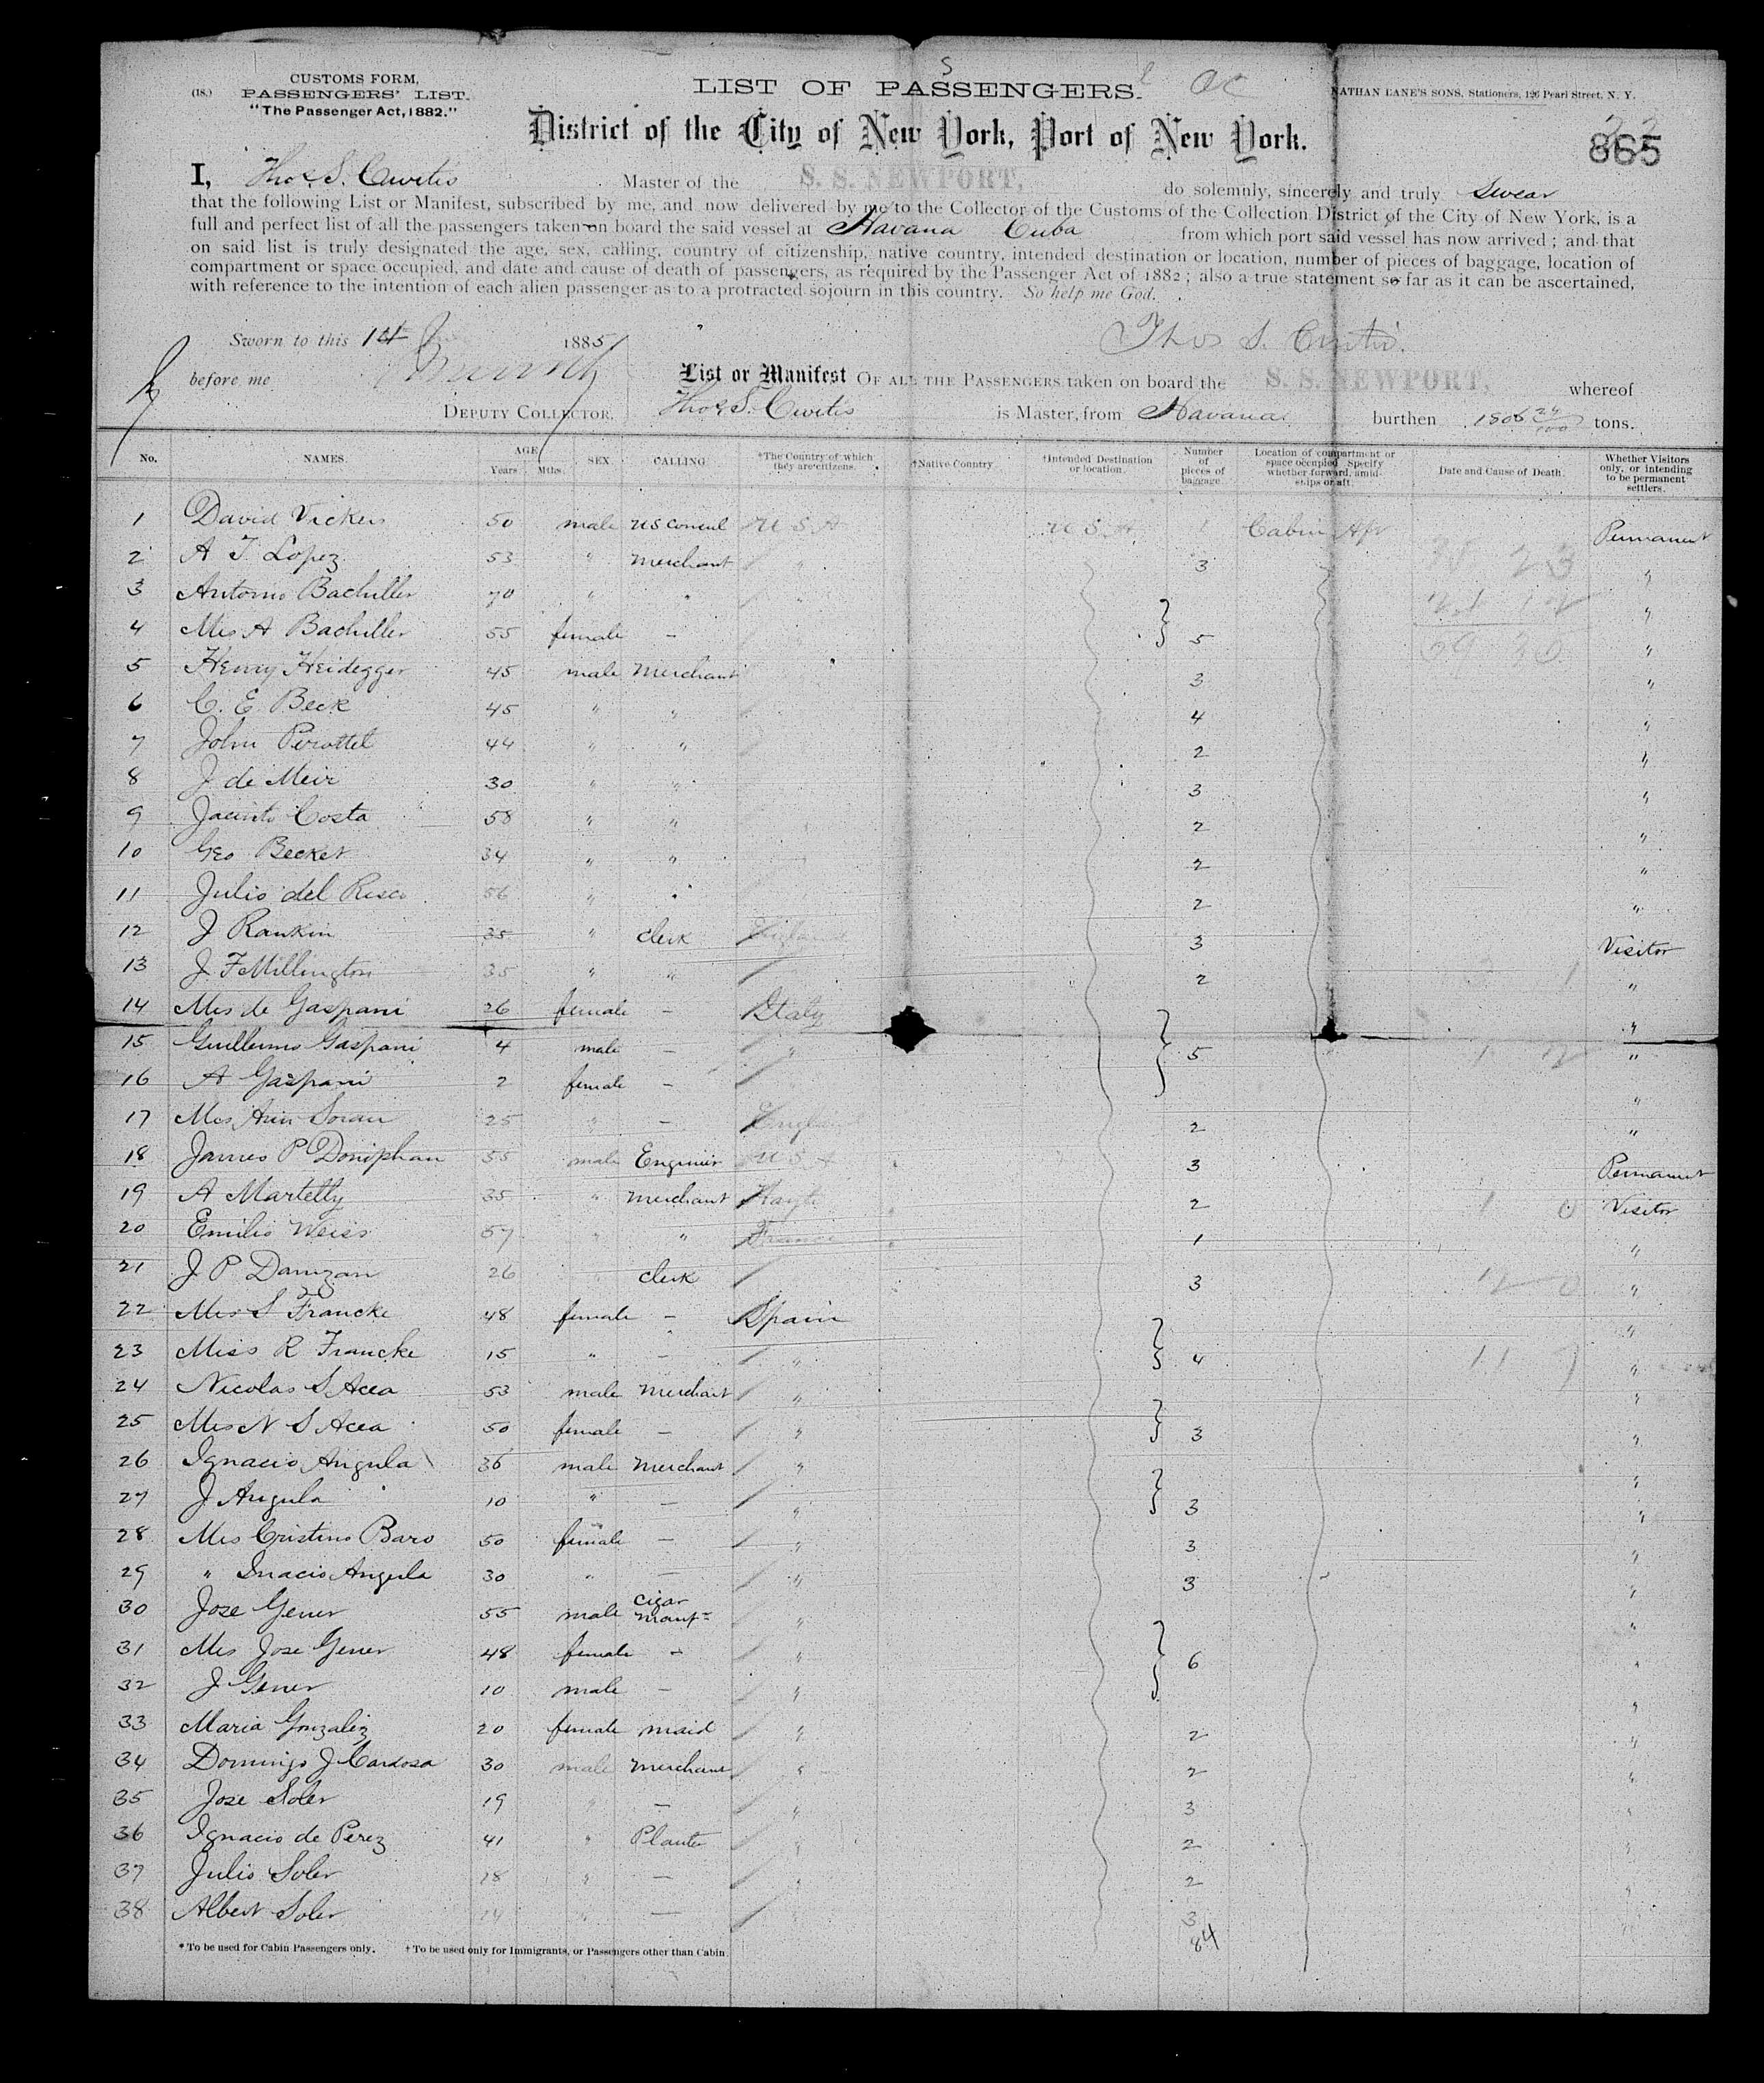 (18.) CUSTOMS FORM,
PASSENGERS' LIST.
"The Passenger Act, 1882."
LIST OF PASSENGERS.
NATHAN LANE'S SONS, Stationers, 126 Pearl Street, N. Y.
District of the City of New York, Port of New York.
865
I, Thos. S. Curtis Master of the S. S. NEWPORT, do solemnly, sincerely and truly Swear
that the following List or Manifest, subscribed by me, and now delivered by me to the Collector of the Customs of the Collection District of the City of New York, is a
full and perfect list of all the passengers taken on board the said vessel at Havana Cuba from which port said vessel has now arrived; and that
on said list is truly designated the age, sex, calling, country of citizenship, native country, intended destination or location, number of pieces of baggage, location of
compartment or space occupied, and date and cause of death of passengers, as required by the Passenger Act of 1882; also a true statement so far as it can be ascertained,
with reference to the intention of each alien passenger as to a protracted sojourn in this country. So help me God.
Sworn to this 1st 1885
Thos S. Curtis.
before me
DEPUTY COLLECTOR.
List or Manifest OF ALL THE PASSENGERS taken on board the S. S. NEWPORT, whereof
Thos S. Curtis is Master, from Havana. burthen 1806 24/100 tons.
No. NAMES. AGE Years Mths. SEX CALLING *The Country of which they are citizens. †Native Country †Intended Destination or location. Number of pieces of baggage Location of compartment or space occupied. Specify whether forward, amidships or aft. Date and Cause of Death. Whether Visitors only, or intending to be permanent settlers.
1 David Vickers 50 male US Consul U S A U S A 1 Cabin Aft Permanent
2 A T. Lopez 53 " Merchant " 3 "
3 Antonio Bachiller 70 " " "
4 Mrs A Bachiller 55 female – 5 "
5 Henry Heidegger 45 male Merchant 3 "
6 C. E Beck 45 " " 4 "
7 John Perottet 44 " " 2 "
8 J de Meir 30 " " 3 "
9 Jacinto Costa 58 " " 2 "
10 Geo Becket 34 " " 2 "
11 Julio del Risco 56 " " 2 "
12 J Rankin 35 " Clerk England 3 Visitor
13 J F Millington 35 " " 2 "
14 Mrs de Gaspani 26 female – Italy "
15 Guillermo Gaspani 4 male – " 5 "
16 A Gaspani 2 female – "
17 Mrs Ann Soran 25 " – England 2 "
18 James P Doniphan 55 male Engineer U S A 3 Permanent
19 A Martelly 35 " Merchant Hayti 2 Visitor
20 Emilio Weiss 57 " " France 1 "
21 J P Damzan 26 " Clerk 3 "
22 Mrs S Francke 48 female – Spain "
23 Miss R Francke 15 " – " 4 "
24 Nicolas S Acea 53 male Merchant " "
25 Mrs N S Acea 50 female – " 3 "
26 Ignacio Angula 36 male Merchant " "
27 J Angula 10 " – " 3 "
28 Mrs Cristino Baro 50 female – " 3 "
29 " Inacio Angula 30 " – " 3 "
30 Jose Gener 55 male Cigar Manfr " "
31 Mrs Jose Gener 48 female – " 6 "
32 J Gener 10 male – " "
33 Maria Gonzalez 20 female maid " 2 "
34 Domingo J Cardosa 30 male Merchant " 2 "
35 Jose Soler 19 " – " 3 "
36 Ignacio de Perez 41 " Planter " 2 "
37 Julio Soler 18 " – " 2 "
38 Albert Soler 24 " – " 3 "
84
* To be used for Cabin Passengers only. † To be used only for Immigrants, or Passengers other than Cabin.